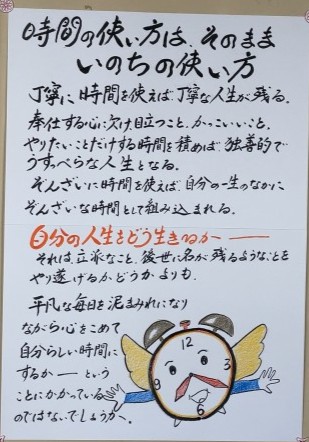 時間の使い方は、そのまま
いのちの使い方
丁寧に時間を使えば丁寧な人生が残る。
奉仕する心に欠け目立つこと、かっこいいこと、
やりたいことだけする時間を積めば、独善的で
うすっぺらな人生となる。
ぞんざいに時間を使えば、自分の一生のなかに
ぞんざいな時間として組み込まれる。
自分の人生をどう生きるか――
それは、立派なこと、後世に名が残るようなことを
やり遂げるかどうかよりも、
平凡な毎日を泥まみれになり
ながら心をこめて
自分らしい時間に
するか――という
ことにかかっている
のではないでしょうか。
12
3
6
9